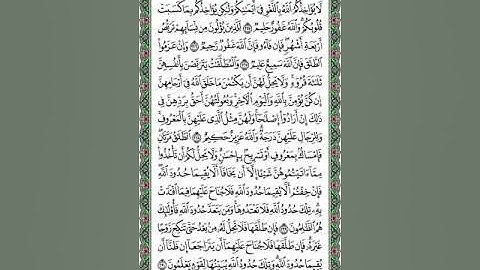 لَا يُؤَاخِذُكُمُ ٱللَّهُ بِٱللَّغْوِ فِىٓ أَيْمَٰنِكُمْ وَلَٰكِن يُؤَاخِذُكُم بِمَا كَسَبَتْ
قُلُوبُكُمْ وَٱللَّهُ غَفُورٌ حَلِيمٌ ٢٢٥ لِّلَّذِينَ يُؤْلُونَ مِن نِّسَآئِهِمْ تَرَبُّصُ
أَرْبَعَةِ أَشْهُرٍ فَإِن فَآءُو فَإِنَّ ٱللَّهَ غَفُورٌ رَّحِيمٌ ٢٢٦ وَإِنْ عَزَمُوا۟
ٱلطَّلَٰقَ فَإِنَّ ٱللَّهَ سَمِيعٌ عَلِيمٌ ٢٢٧ وَٱلْمُطَلَّقَٰتُ يَتَرَبَّصْنَ بِأَنفُسِهِنَّ
ثَلَٰثَةَ قُرُوٓءٍ وَلَا يَحِلُّ لَهُنَّ أَن يَكْتُمْنَ مَا خَلَقَ ٱللَّهُ فِىٓ أَرْحَامِهِنَّ
إِن كُنَّ يُؤْمِنَّ بِٱللَّهِ وَٱلْيَوْمِ ٱلْءَاخِرِ وَبُعُولَتُهُنَّ أَحَقُّ بِرَدِّهِنَّ فِى
ذَٰلِكَ إِنْ أَرَادُوٓا۟ إِصْلَٰحًا وَلَهُنَّ مِثْلُ ٱلَّذِى عَلَيْهِنَّ بِٱلْمَعْرُوفِ
وَلِلرِّجَالِ عَلَيْهِنَّ دَرَجَةٌ وَٱللَّهُ عَزِيزٌ حَكِيمٌ ٢٢٨ ٱلطَّلَٰقُ مَرَّتَانِ
فَإِمْسَاكٌۢ بِمَعْرُوفٍ أَوْ تَسْرِيحٌۢ بِإِحْسَٰنٍ وَلَا يَحِلُّ لَكُمْ أَن تَأْخُذُوا۟
مِمَّآ ءَاتَيْتُمُوهُنَّ شَيْـًٔا إِلَّآ أَن يَخَافَآ أَلَّا يُقِيمَا حُدُودَ ٱللَّهِ
فَإِنْ خِفْتُمْ أَلَّا يُقِيمَا حُدُودَ ٱللَّهِ فَلَا جُنَاحَ عَلَيْهِمَا فِيمَا ٱفْتَدَتْ
بِهِۦ تِلْكَ حُدُودُ ٱللَّهِ فَلَا تَعْتَدُوهَا وَمَن يَتَعَدَّ حُدُودَ ٱللَّهِ فَأُو۟لَٰٓئِكَ
هُمُ ٱلظَّٰلِمُونَ ٢٢٩ فَإِن طَلَّقَهَا فَلَا تَحِلُّ لَهُۥ مِنۢ بَعْدُ حَتَّىٰ تَنكِحَ زَوْجًا
غَيْرَهُۥ فَإِن طَلَّقَهَا فَلَا جُنَاحَ عَلَيْهِمَآ أَن يَتَرَاجَعَآ إِن ظَنَّآ أَن
يُقِيمَا حُدُودَ ٱللَّهِ وَتِلْكَ حُدُودُ ٱللَّهِ يُبَيِّنُهَا لِقَوْمٍ يَعْلَمُونَ ٢٣٠